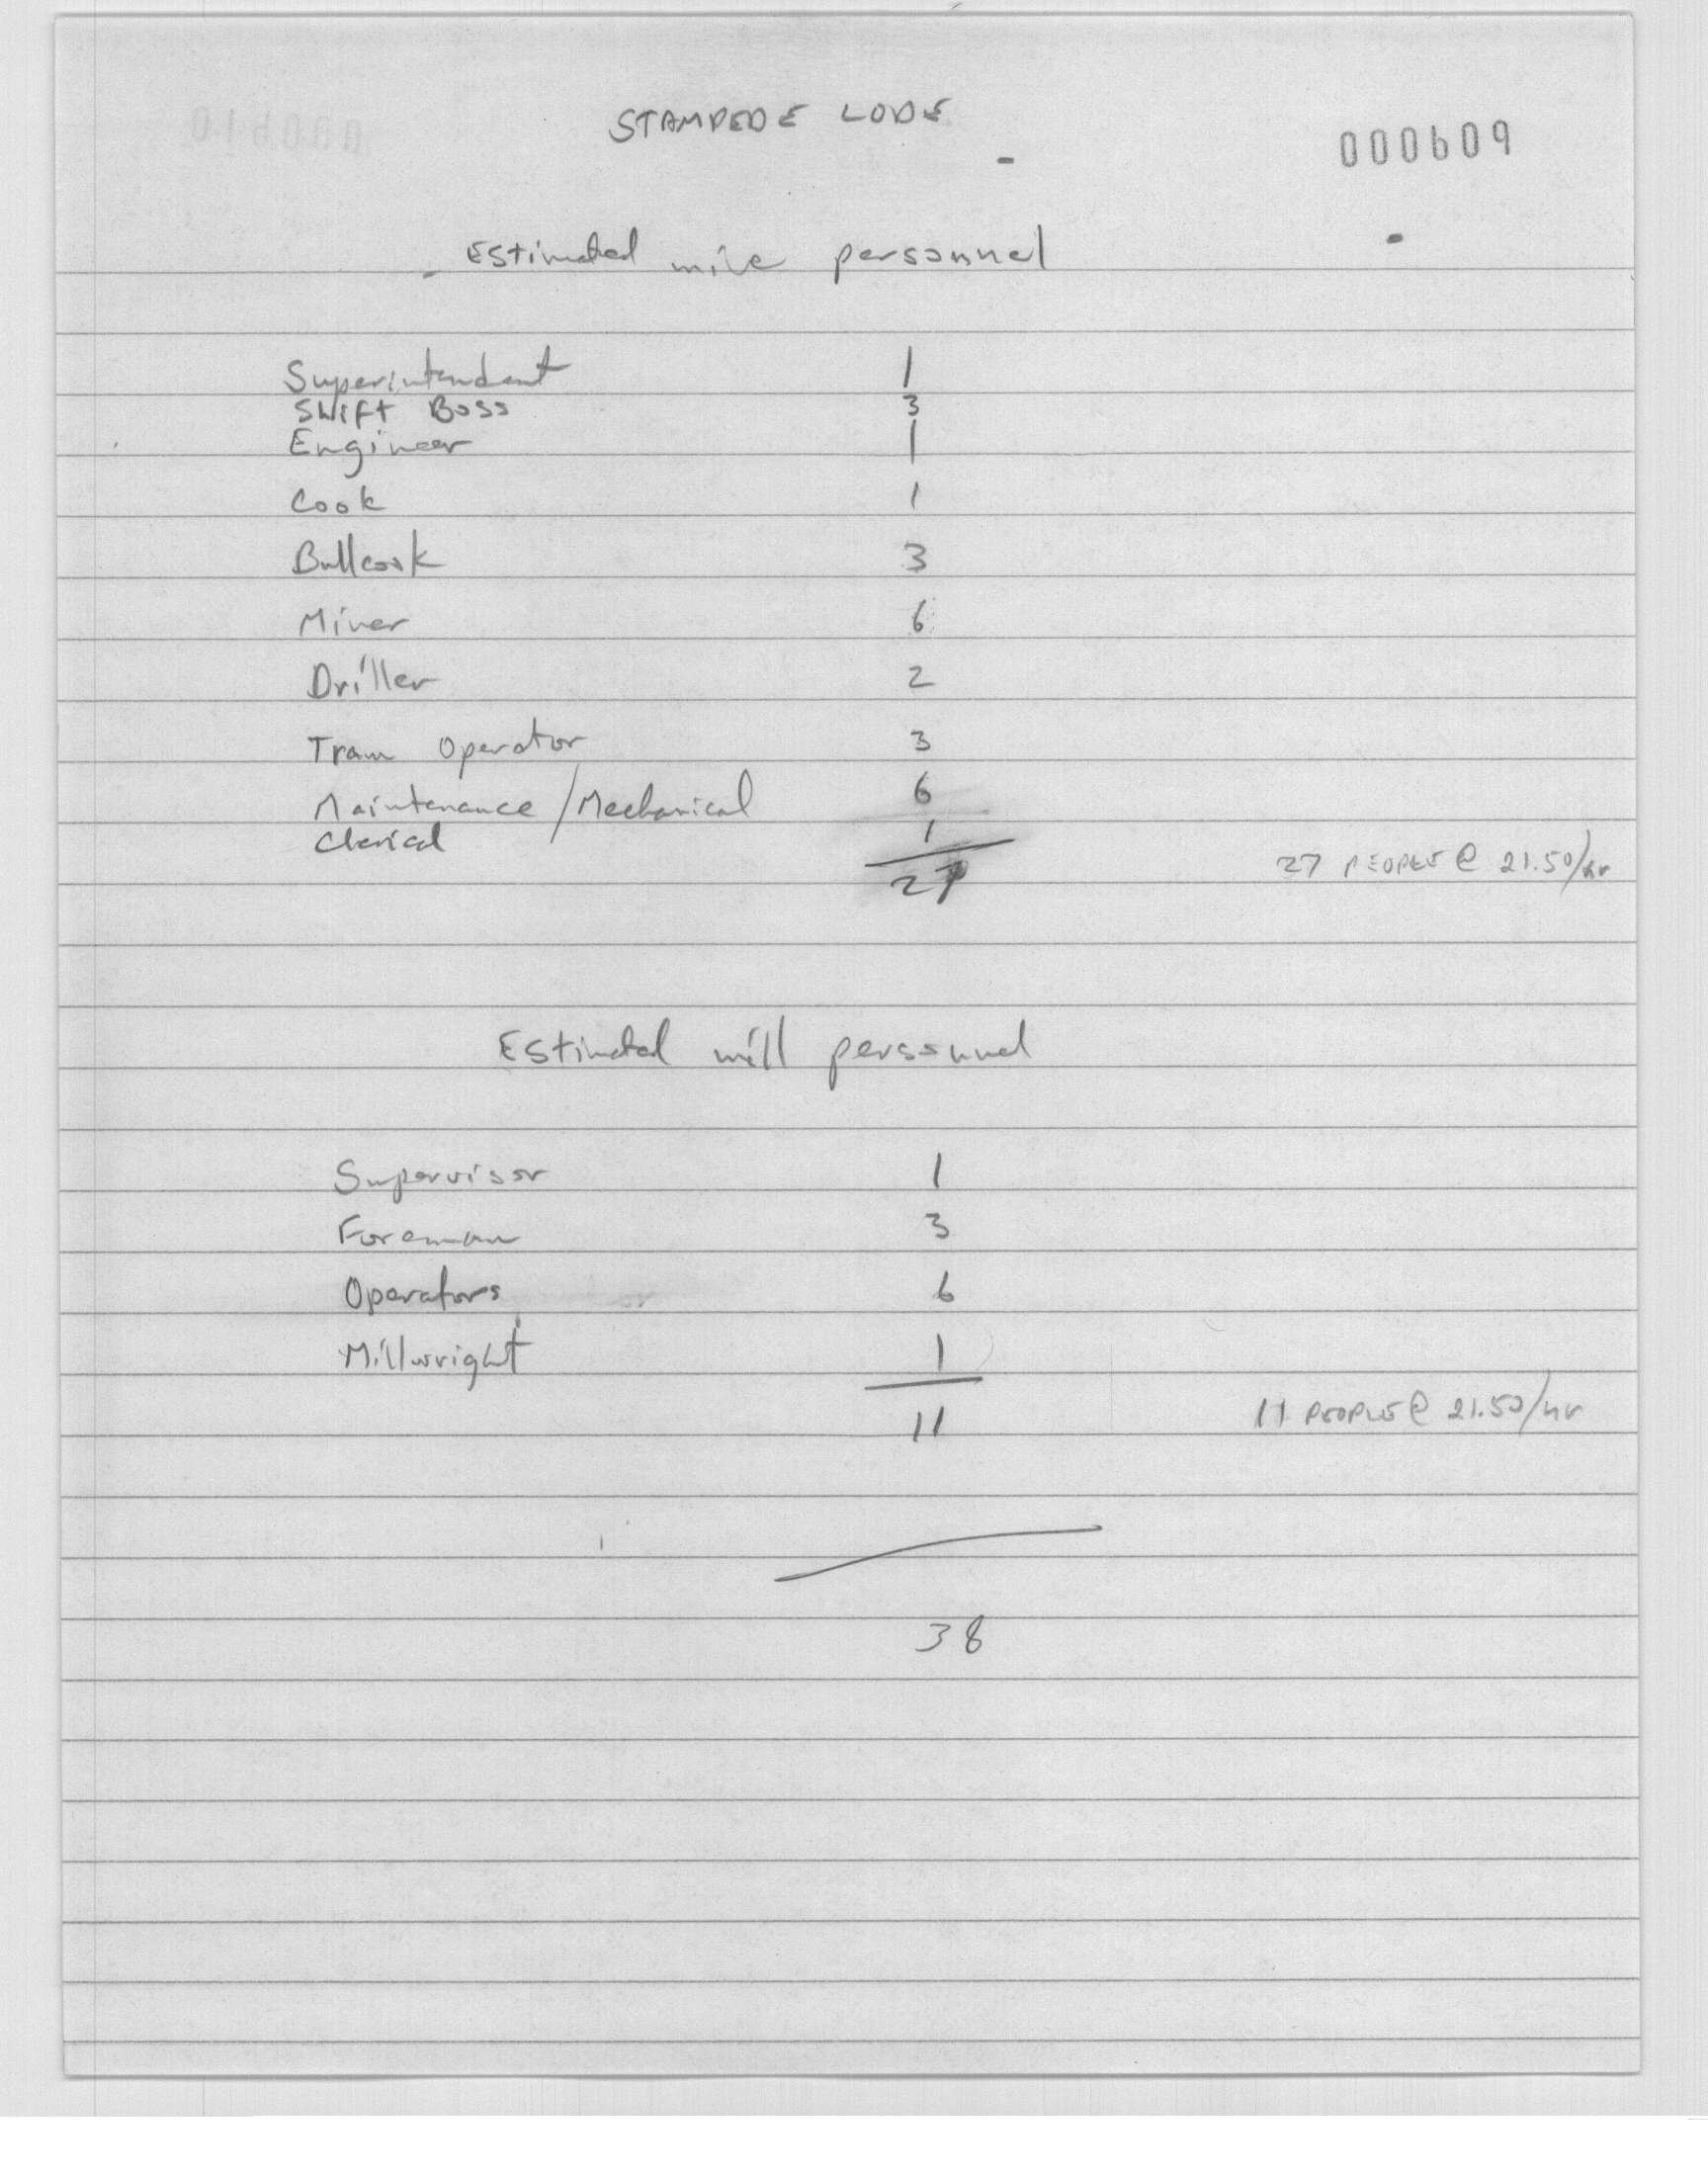 STAMPEDE LODE
000609
Estimated mine personnel
Superintendent 1
Shift Boss 3
Engineer 1
Cook 1
Bullcook 3
Miner 6
Driller 2
Tram Operator 3
Maintenance/Mechanical 6
Clerical 1
27 27 PEOPLE @ 21.50/hr
Estimated mill personnel
Supervisor 1
Foreman 3
Operators 6
Millwright 1
11 11 PEOPLE @ 21.50/hr
38